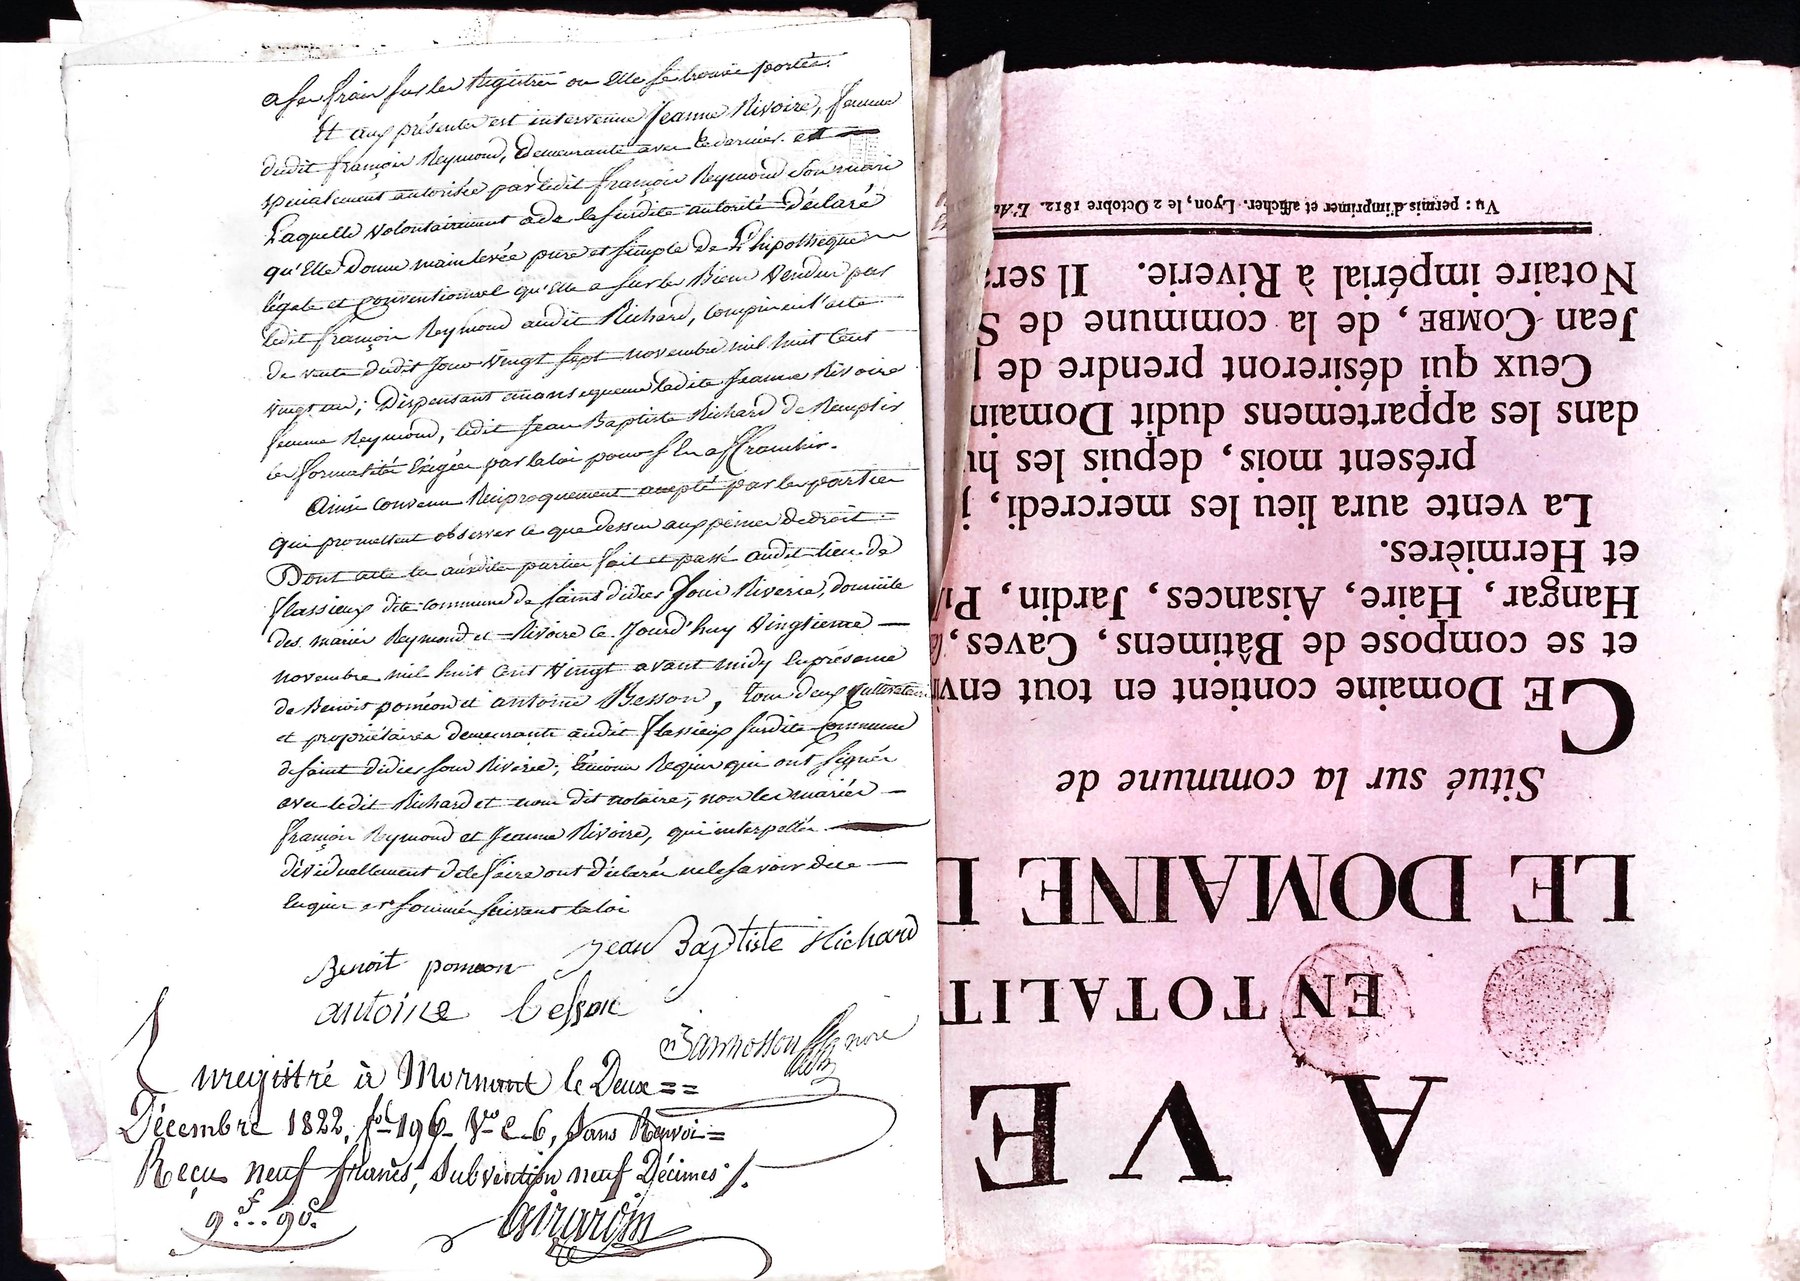 a ses frais sur les Registres ou Elle se trouve portée.
Et aux présentes est intervenue Jeanne Rivoire, femme
dudit françois Reymond, demeurante avec ce dernier. et
spécialement autorisée par ledit françois Reymond Son mari
Laquelle volontairement a de la susdite autorité déclaré
qu'Elle donne main levée pure et simple de L'hipothèque
légale et Conventionnel qu'elle a sur les Biens Vendus par
ledit françois Reymond audit Richard, compris en l'acte
de vente dudit Jour Vingt sept novembre mil huit Cent
vingt un; Dispensant en conséquence ladite Jeanne Rivoire
femme Reymond, ledit Jean Baptiste Richard de Remplir
les formalités Exigées par la loi pour s'En affranchir.
Ainsi convenu Réciproquement accepté par les parties
qui promettent observer ce que dessus aux peines de droit.
Dont acte les ausdites parties fait et passé audit lieu de
flassieux dite commune de saint didier sous Riverie, domicile
des mariés Reymond et Rivoire Ce Jourd'huy Vingtieme
novembre mil huit Cent Vingt avant midy En présence
de Benoit poméon et antoine Besson, tous deux Cultivateurs
et propriétaires demeurants audit flassieux susdite Commune
de saint didier sous Riverie; témoins Requis qui ont signés
avec ledit Richard et nous dit notaire, non les mariés
françois Reymond et Jeanne Rivoire, qui interpellés
dividuellement de le faire ont déclarés ne le savoir de ce
Enquis et sommés suivant la loi
Jean Baptiste Richard
Benoit pomeon
antoine besson
Enregistré à Mornant le Deux ==
Décembre 1822, fol 196 Vo C. 6, Sans Renvoi =
Reçu neuf francs, Subvention neuf Décimes
9f...90c
Girardin
A VE
EN TOTALIT
LE DOMAINE D
Situé sur la commune de
CE Domaine contient en tout envi
et se compose de Bâtimens, Caves,
Hangar, Haire, Aisances, Jardin, P
et Hermières.
La vente aura lieu les mercredi, j
présent mois, depuis les hu
dans les appartemens dudit Domain
Ceux qui désireront prendre de
Jean COMBE, de la commune de S
Notaire impérial à Riverie. Il sera
Vu : permis d'imprimer et afficher. Lyon, le 2 Octobre 1812.